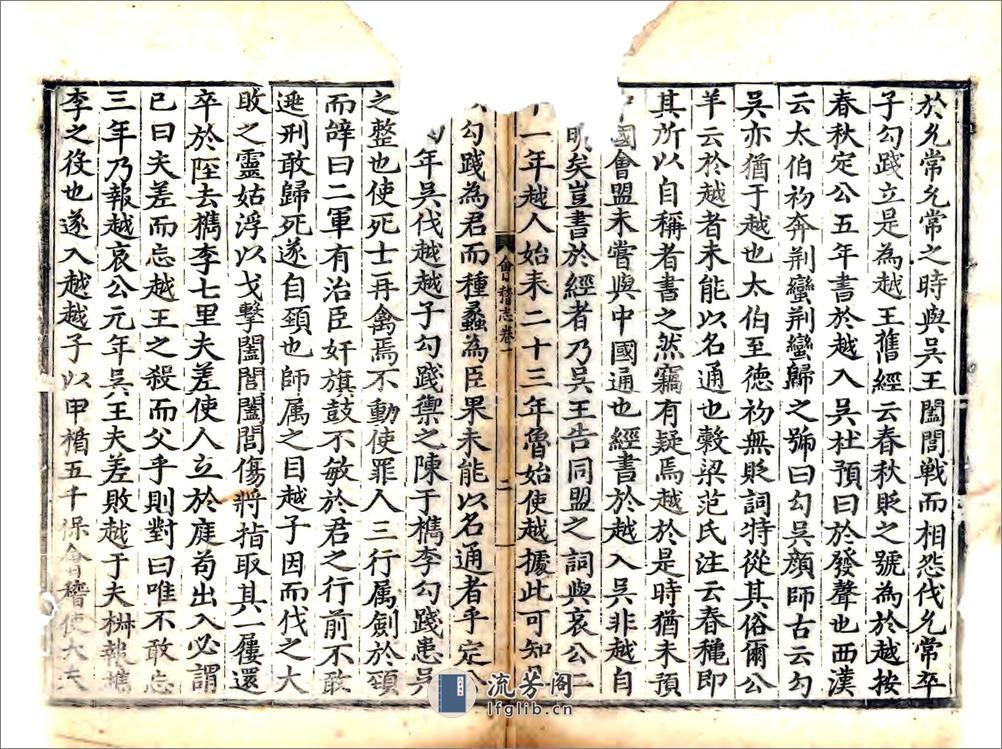 於允常允常之時與吳王闔閭戰而相怨伐允常卒
子勾踐立是為越王舊經云春秋貶之號為於越按
春秋定公五年書於越入吳杜預曰於發聲也西漢
云太伯初奔荆蠻荆蠻歸之號曰勾吳顔師古云勾
吳亦猶于越也太伯至德初無貶詞特從其俗爾公
羊云於越者未能以名通也榖梁范氏注云春穐即
其所以自稱者書之然竊有疑焉越於是時猶未預
中國會盟未嘗與中國通也經書於越入吳非越自
明矣豈書於經者乃吳王告同盟之詞與哀公二
十一年越人始来二十三年魯始使越據此可知
勾踐為君而種蠡為臣果未能以名通者乎定
年吳伐越越子勾踐禦之陳于檇李勾踐患吳
之整也使死士再禽焉不動使罪人三行属劍於頸
而辭曰二軍有治臣奸旗鼓不敏於君之行前不敢
逃刑敢歸死遂自頚也師属之目越子因而伐之大
敗之靈姑浮以戈擊闔閭闔閭傷將指取其一屨還
卒於陘去檇李七里夫差使人立於庭苟出入必謂
已曰夫差而忘越王之殺而父乎則對曰唯不敢忘
三年乃報越哀公元年吳王夫差敗越于夫椒報檇
李之役也遂入越越子以甲楯五千保會稽使大夫
會稽志卷一
二
流芳阁
lfglib.cn